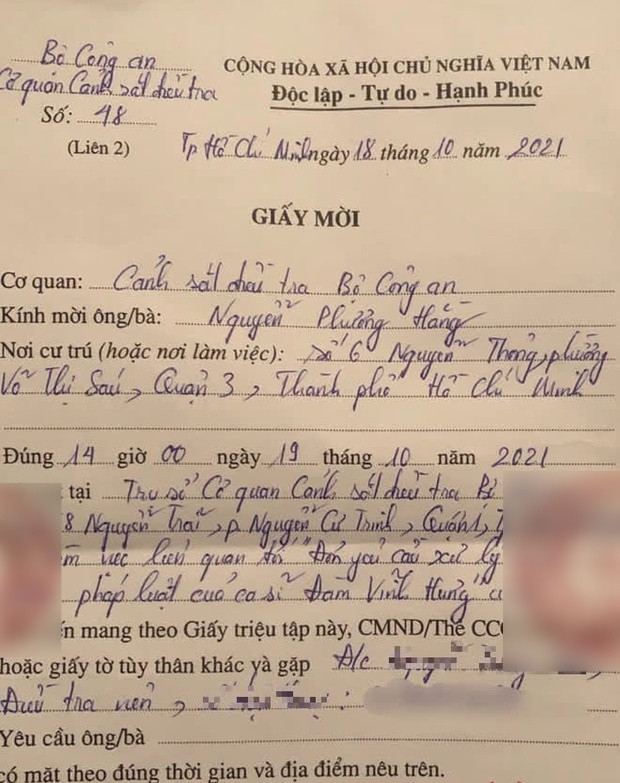 Bộ Công an
Cơ quan Cảnh sát điều tra
CỘNG HÒA XÃ HỘI CHỦ NGHĨA VIỆT NAM
Độc lập - Tự do - Hạnh Phúc
Số: 48
(Liên 2)
Tp Hồ Chí Minh ngày 18 tháng 10 năm 2021
GIẤY MỜI
Cơ quan: Cảnh sát điều tra Bộ Công an
Kính mời ông/bà: Nguyễn Phương Hằng
Nơi cư trú (hoặc nơi làm việc): Số 6 Nguyễn Thông, phường
Võ Thị Sáu, Quận 3, Thành phố Hồ Chí Minh
Đúng 14 giờ 00 ngày 19 tháng 10 năm 2021
tại Trụ sở Cơ quan Cảnh sát điều tra Bộ
8 Nguyễn Trãi, p. Nguyễn Cư Trinh, Quận 1,
việc liên quan tới "Đơn yêu cầu xử lý
pháp luật của ca sĩ Đàm Vĩnh Hưng"
mang theo Giấy triệu tập này, CMND/Thẻ CC
hoặc giấy tờ tùy thân khác và gặp Đ/c
Điều tra viên,
Yêu cầu ông/bà
có mặt theo đúng thời gian và địa điểm nêu trên.